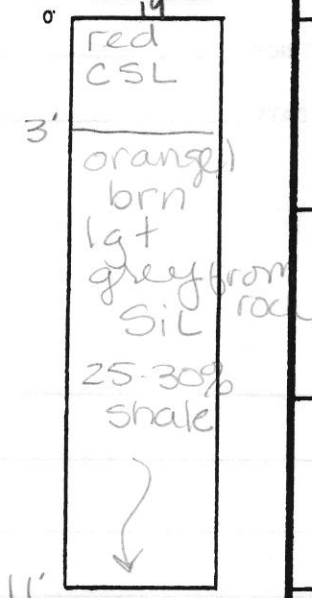 19
0'
red
CSL
3'
orange/
brn
lgt
grey from
rock
SiL
25-30%
shale
11'